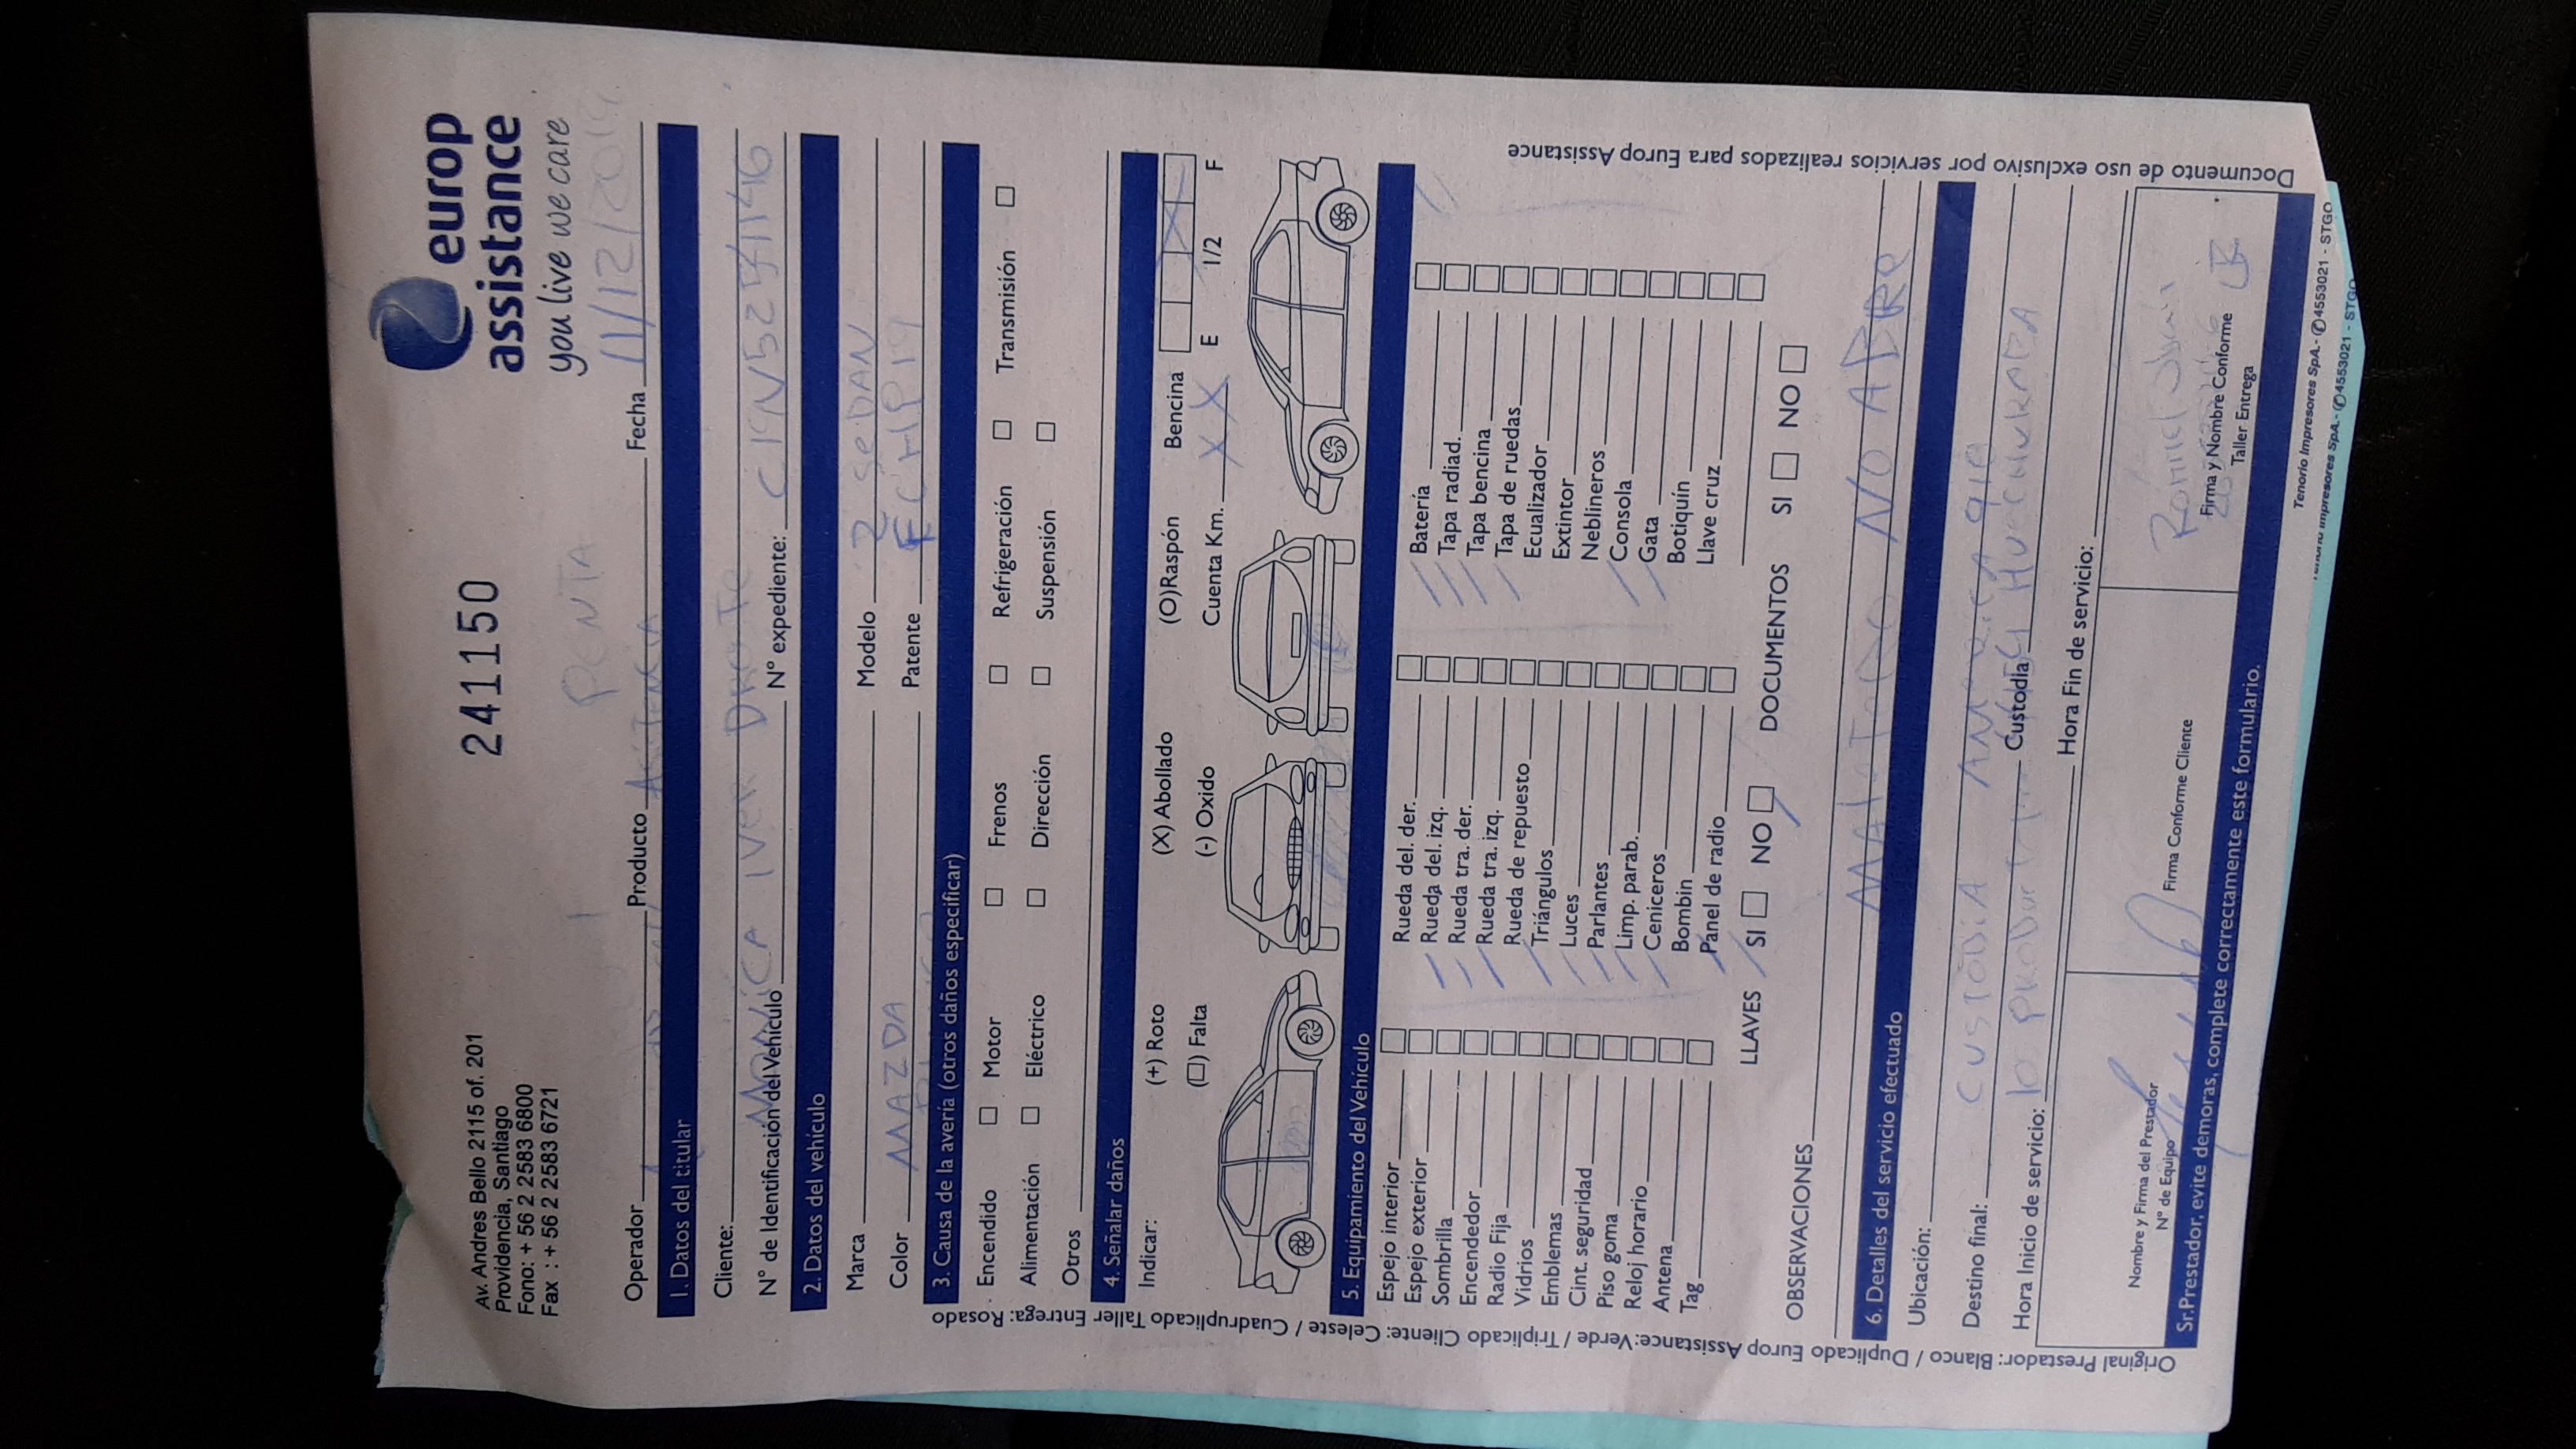 europ
assistance
you live we care
Av. Andres Bello 2115 of. 201
Providencia, Santiago
Fono: + 56 2 2583 6800
Fax : + 56 2 2583 6721
241150
PENTA
Operador Producto ASISTENCIA Fecha 11/12/2019
1. Datos del titular
Cliente: MONICA IVER
N° de Identificación del Vehículo N° expediente:
2. Datos del vehículo
Marca MAZDA Modelo 2 SEDAN
Color Patente FCHP19
3. Causa de la avería (otros daños especificar)
Encendido Motor Frenos Refrigeración Transmisión
Alimentación Eléctrico Dirección Suspensión
Otros
4. Señalar daños
Indicar: (+) Roto (X) Abollado (O)Raspón Bencina
(□) Falta (-) Oxido Cuenta Km. XX E 1/2 F
5. Equipamiento del Vehículo
Espejo interior Rueda del. der. Batería
Espejo exterior Rueda del. izq. Tapa radiad.
Sombrilla Rueda tra. der. Tapa bencina
Encendedor Rueda tra. izq. Tapa de ruedas
Radio Fija Rueda de repuesto Ecualizador
Vidrios Triángulos Extintor
Emblemas Luces Neblineros
Cint. seguridad Parlantes Consola
Piso goma Limp. parab. Gata
Reloj horario Ceniceros Botiquín
Antena Bombin Llave cruz
Tag Panel de radio
LLAVES SI NO DOCUMENTOS SI NO
OBSERVACIONES
MALETERO NO ABRE
6. Detalles del servicio efectuado
Ubicación:
Destino final: CUSTODIA AMERICA
Hora Inicio de servicio: Custodia HUECHURABA
Hora Fin de servicio:
Nombre y Firma del Prestador
N° de Equipo
Firma Conforme Cliente
Firma y Nombre Conforme
Taller Entrega
Sr.Prestador, evite demoras, complete correctamente este formulario.
Original Prestador: Blanco / Duplicado Europ Assistance:Verde / Triplicado Cliente: Celeste / Cuadruplicado Taller Entrega: Rosado
Documento de uso exclusivo por servicios realizados para Europ Assistance
Tenorio Impresores SpA.- ✆4553021 - STGO
Impresores SpA.- ✆4553021 - STGO